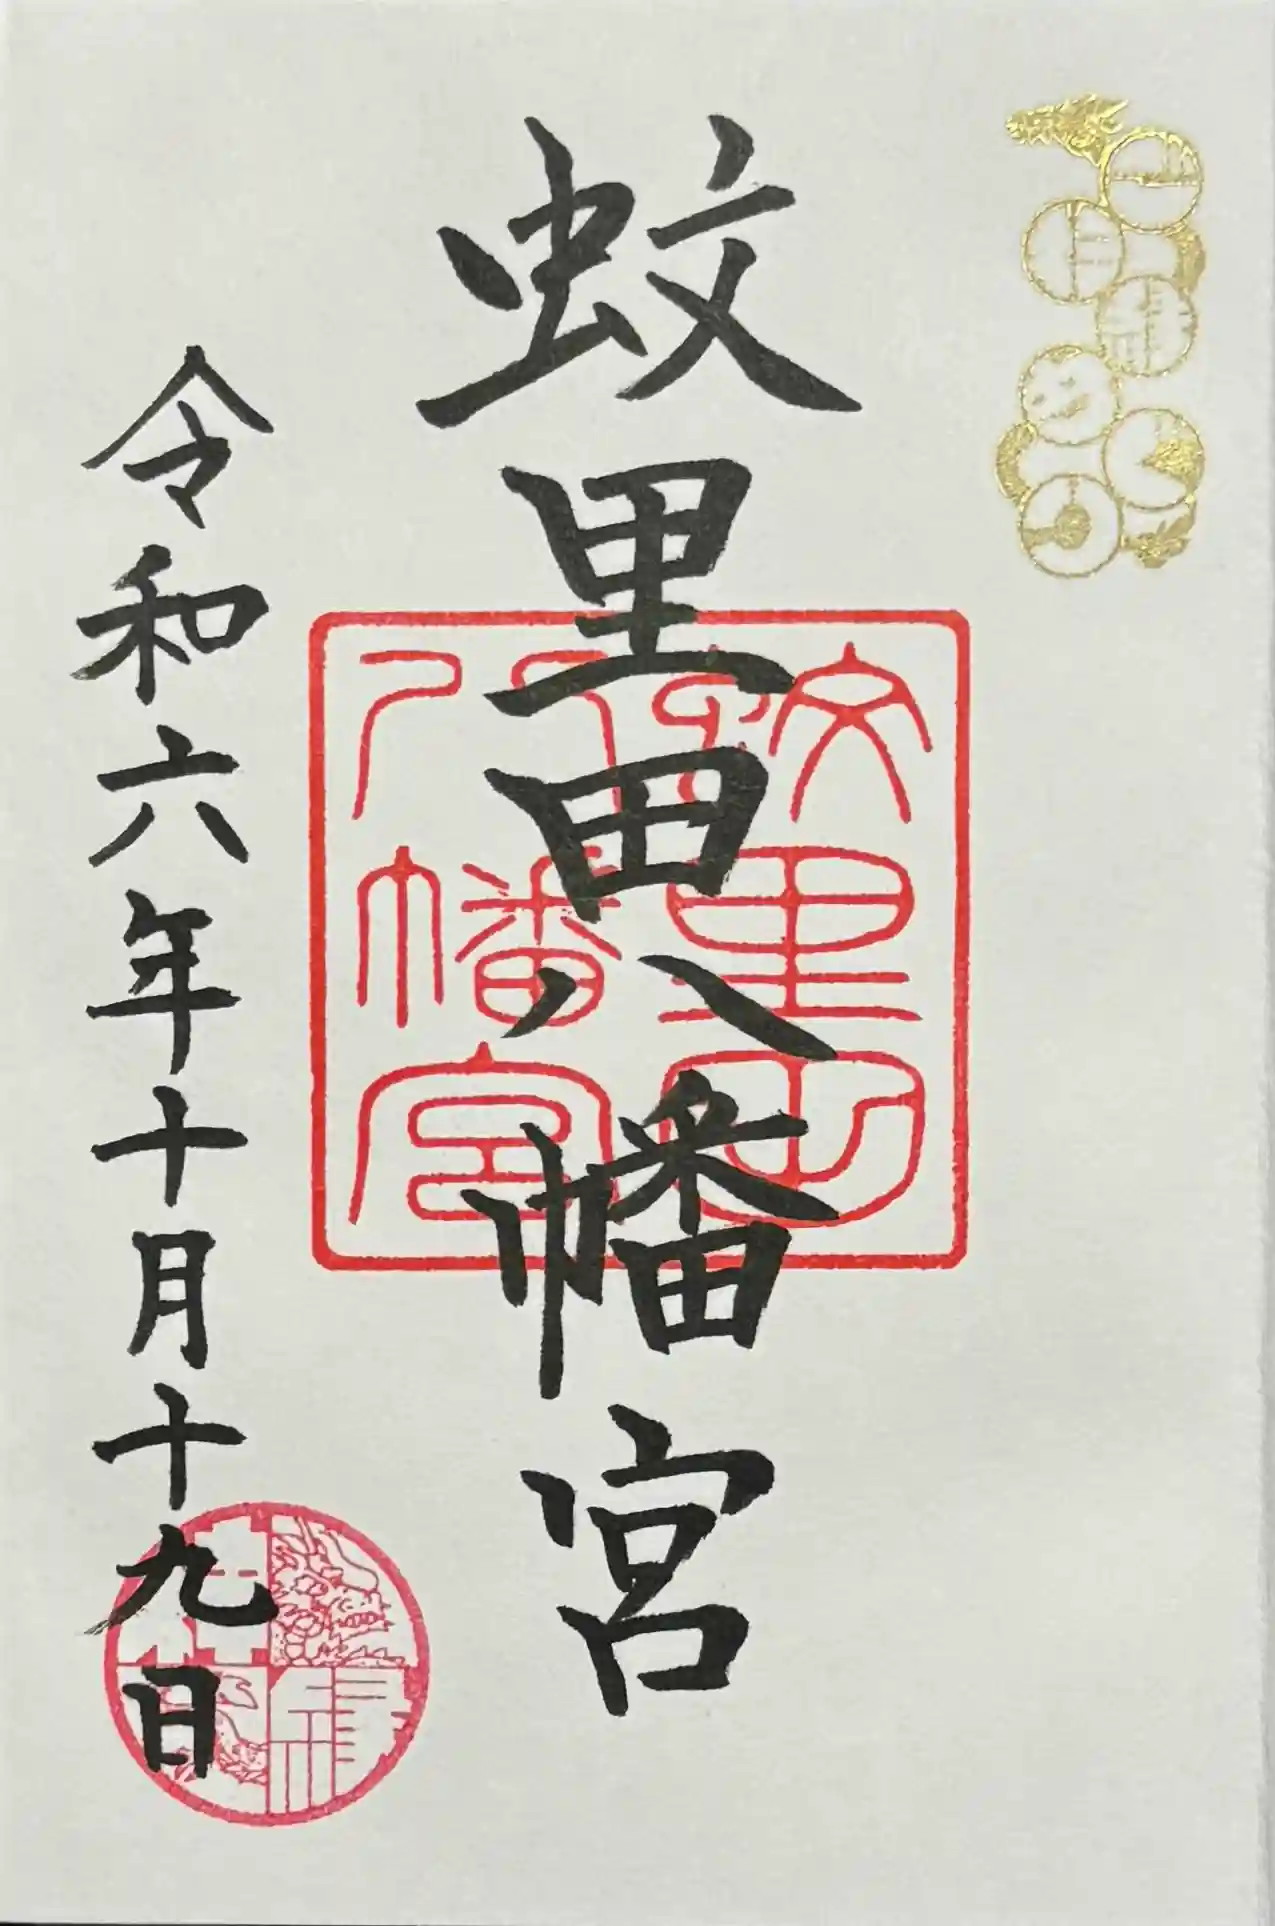 蚊里田八幡宮
蚊里田
八幡宮
令和六年十月十九日